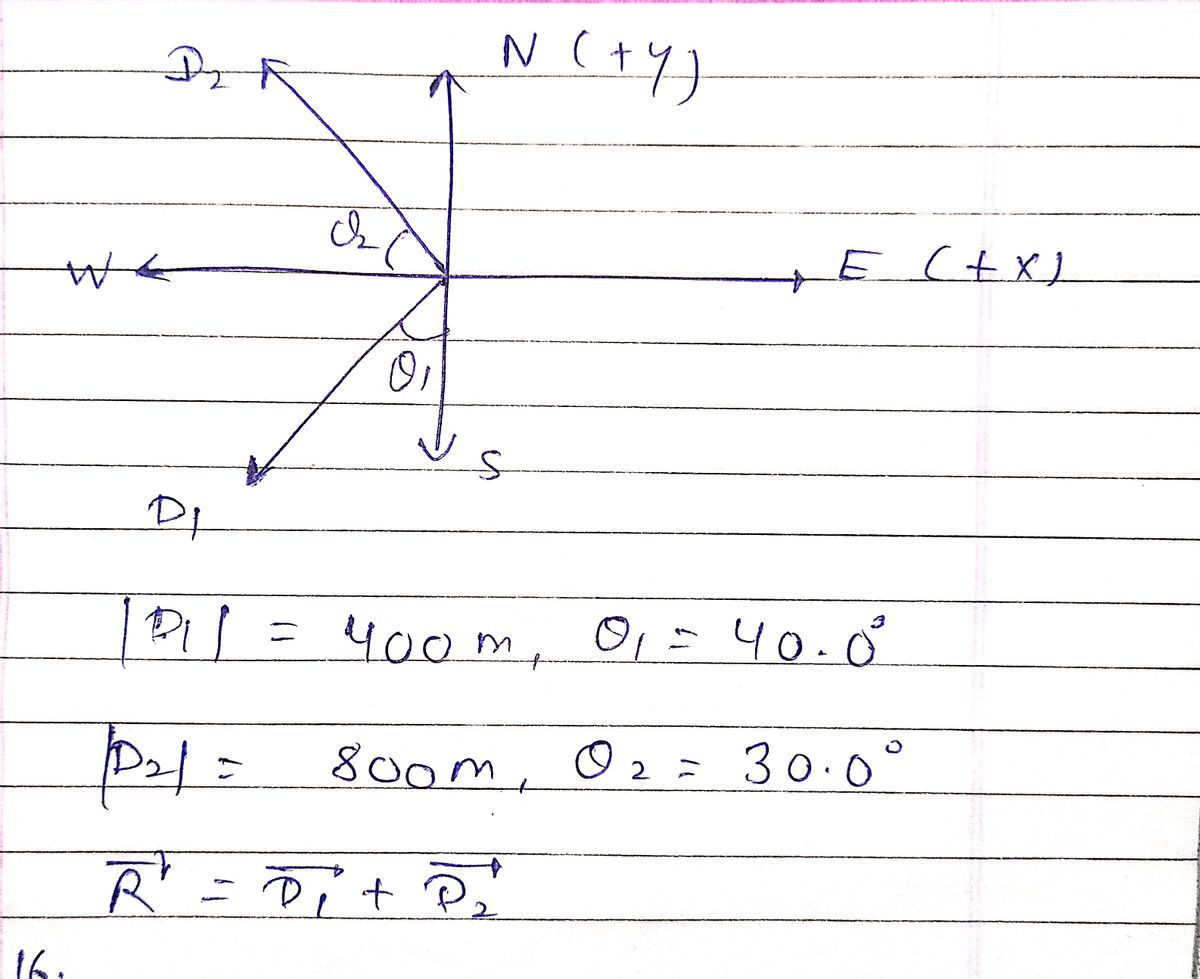 D₂ N (+y)
θ₂
W E (+x)
θ₁
S
D₁
|D₁| = 400 m, θ₁ = 40.0°
|D₂| = 800 m, θ₂ = 30.0°
R⃗ = D⃗₁ + D⃗₂
16.